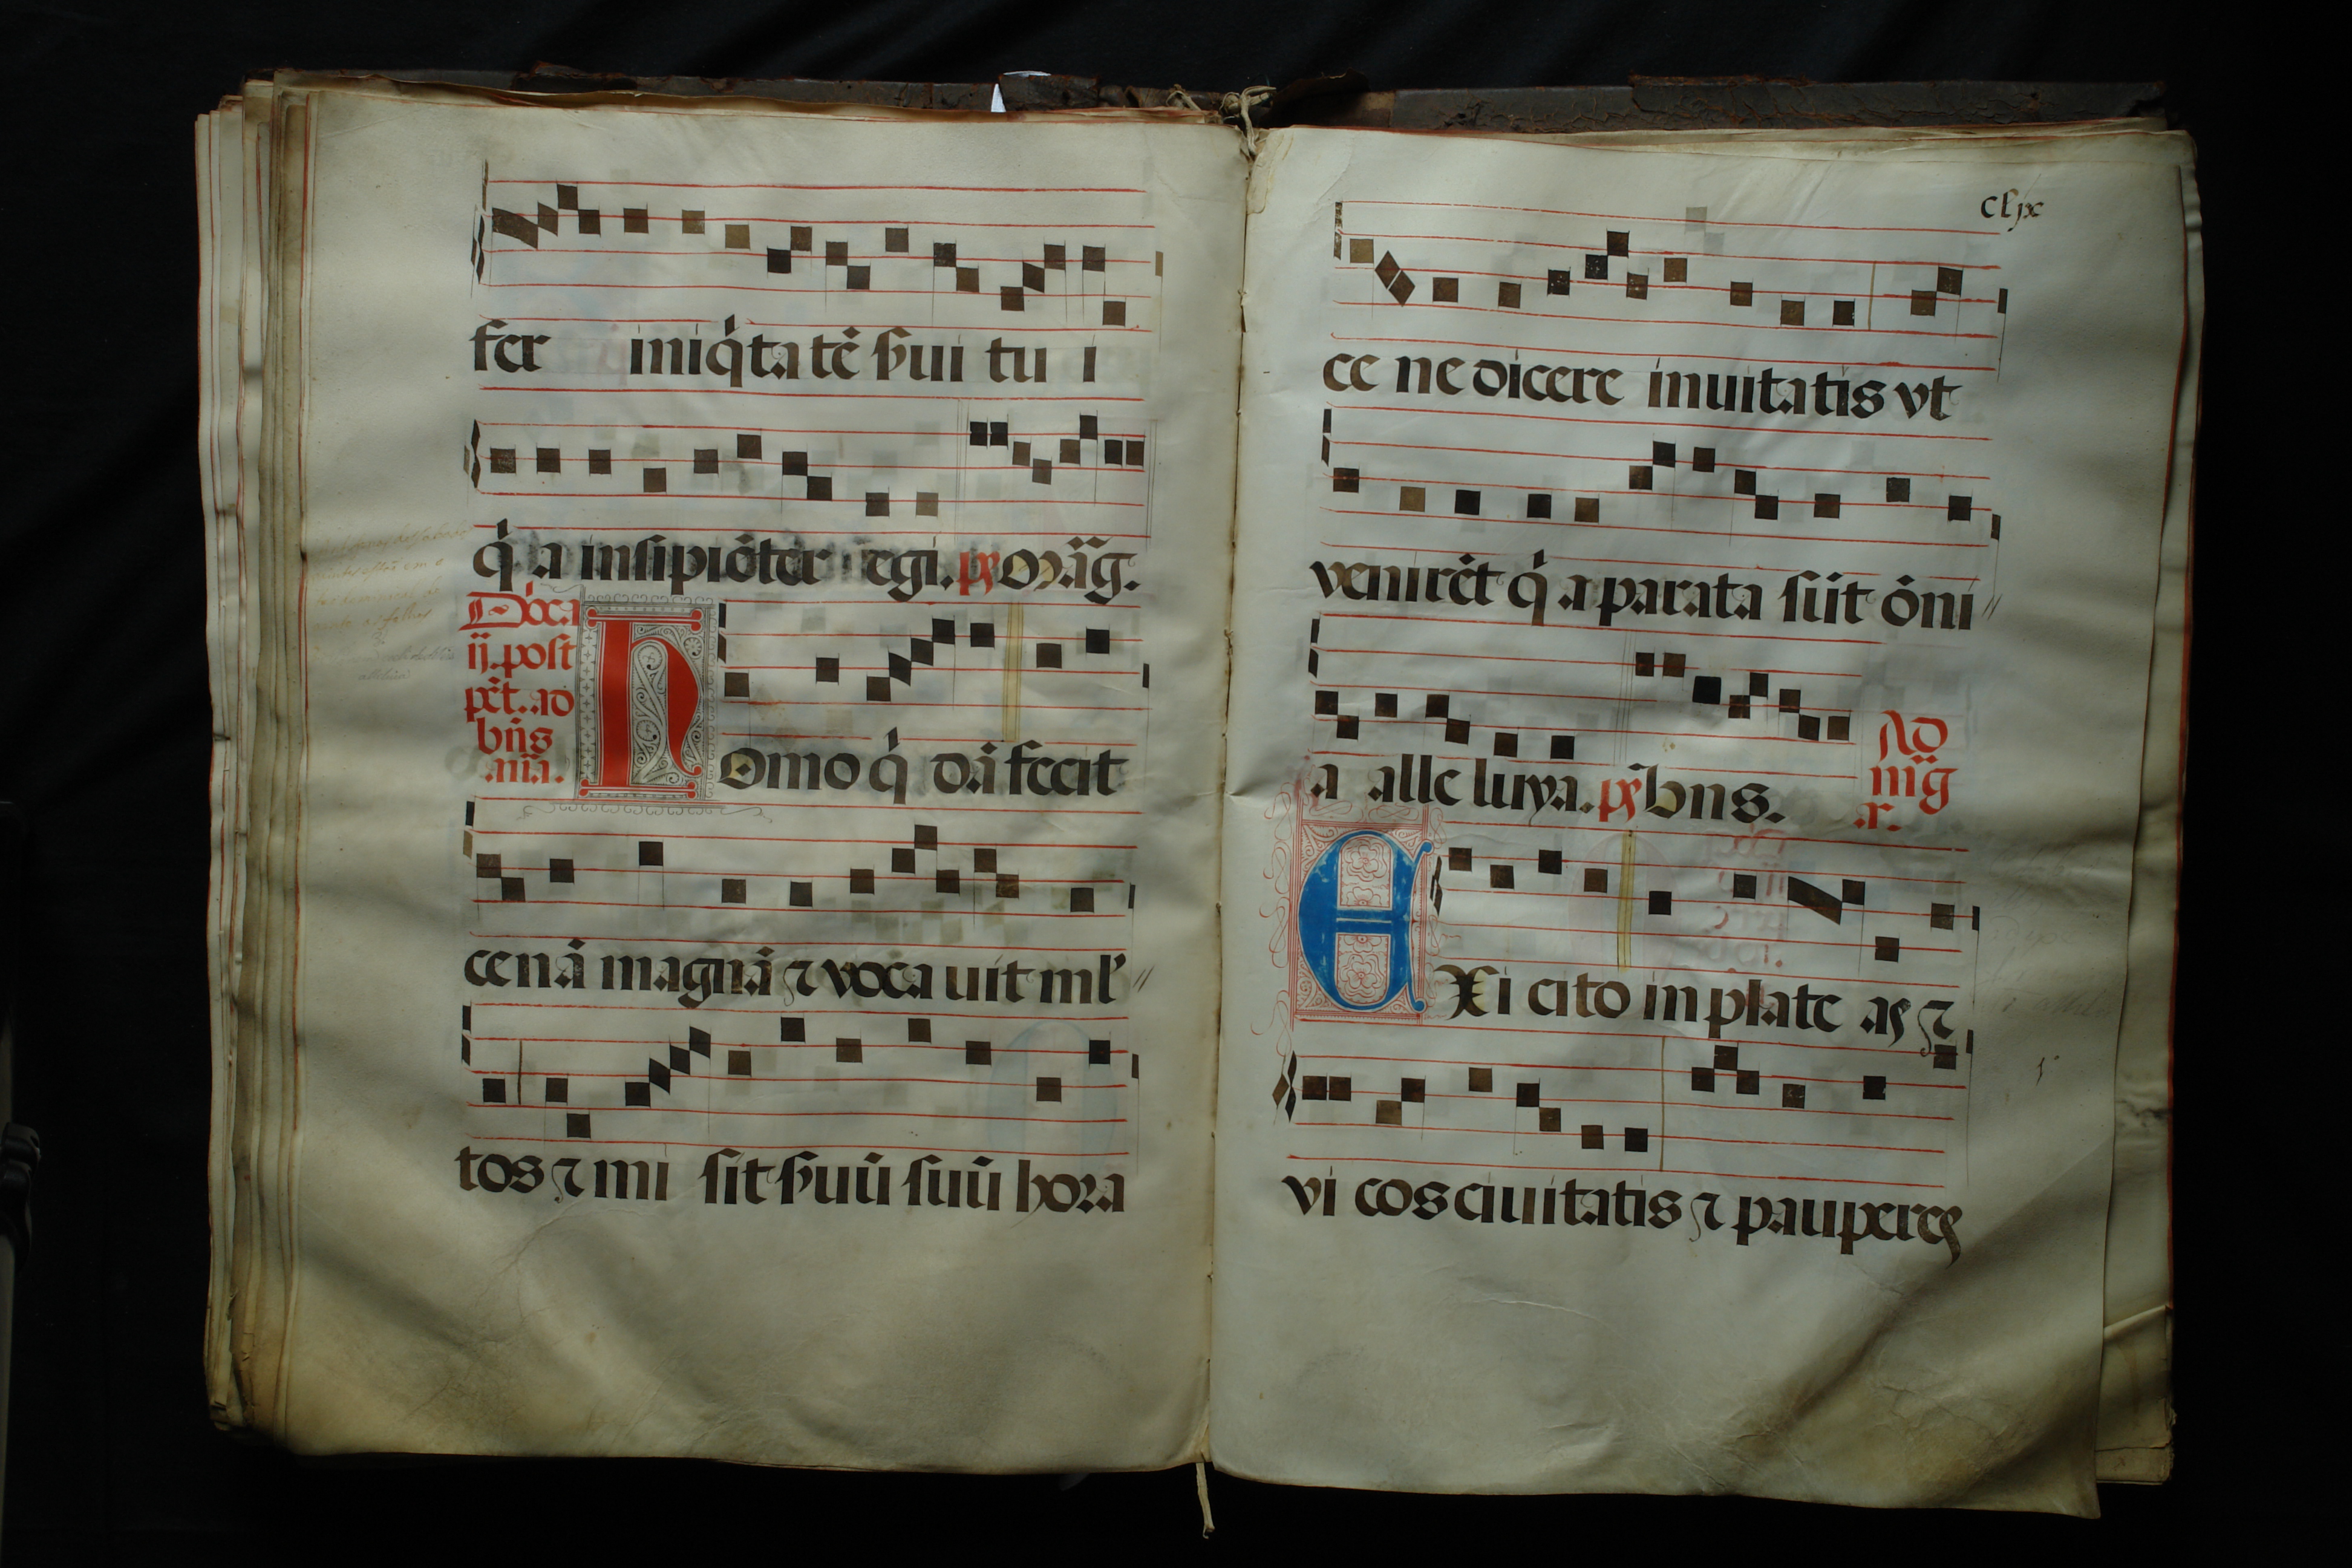 fer iniq̇ta tē s̄ui tu i
q̇ a insipiēter egi. ps̄ Mag̅.
Dn̄ca
ij. post
pēt. ad
bn̄s
.nia.
HOmo q̇ dā fecit
cenā magnā ⁊ voca uit ml̕ //
tos ⁊ mi sit s̄uū suū hora
cljx
ce ne dicere inuitatis vt
venirēt q̇ a parata sūt ōni //
a alle luya. ps̄ bn̄s.
Ad
mg̅
.r.
EXi cito in plate as ⁊
vi cos ciuitatis ⁊ pauperes